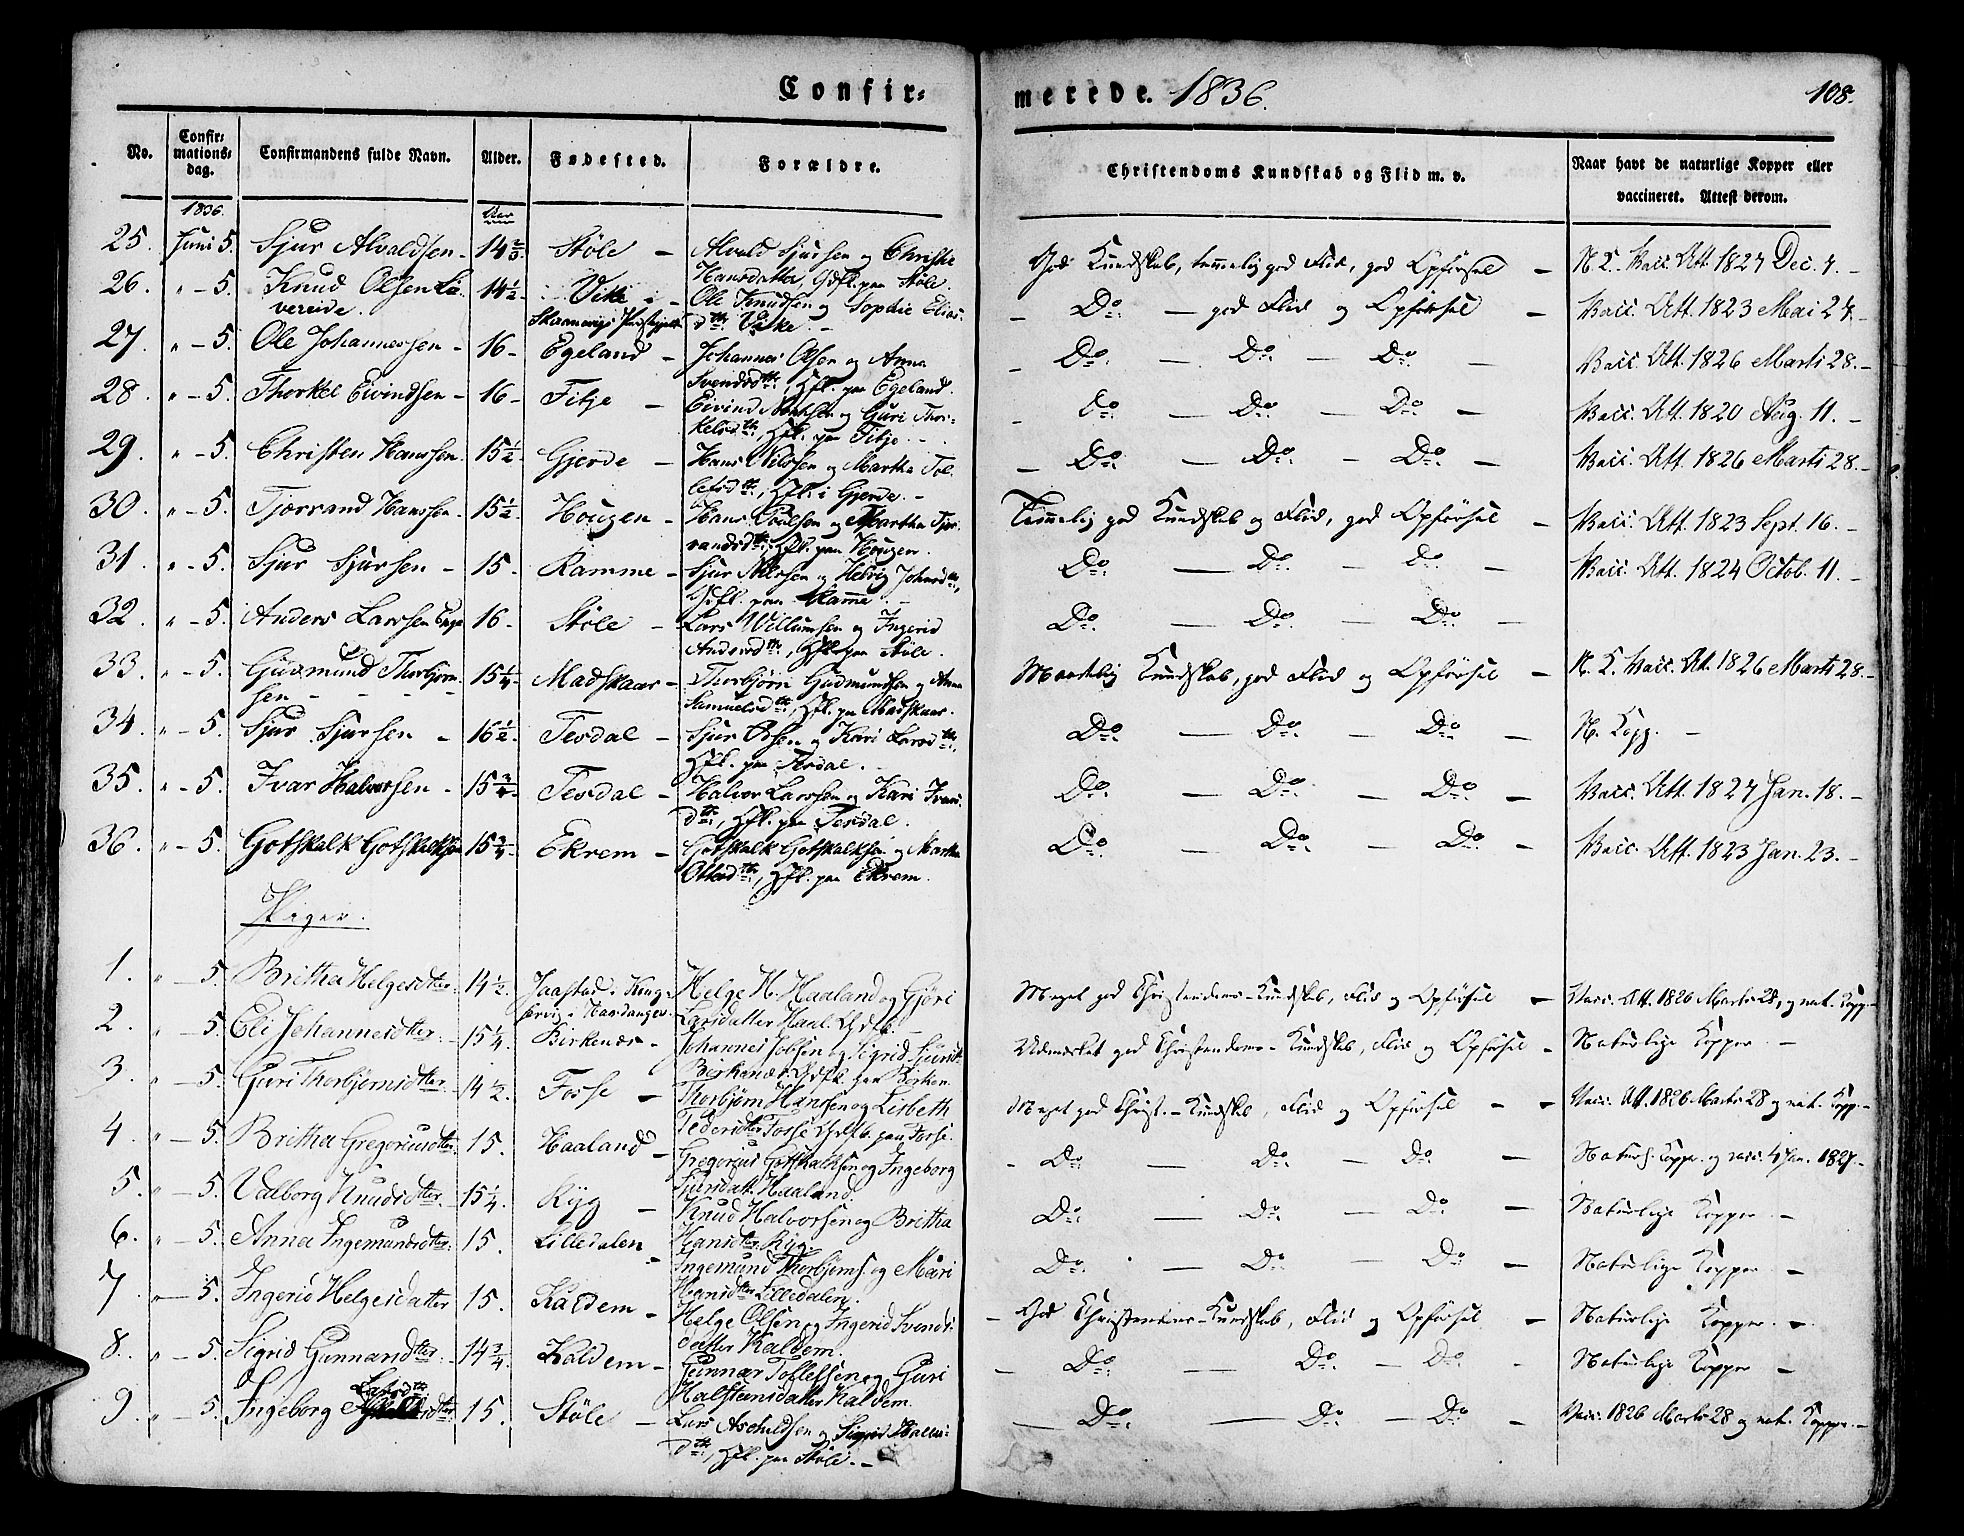 Confir=
merede. 1836.
108.
No.
Confir=
mations=
dag.
Confirmandens fulde Navn.
Alder.
Fødested.
Forældre.
Christendoms Kundskab og Flid m. v.
Naar havt de naturlige Kopper eller
vaccineret. Attest derom.
1836.
Aar
25. Juni 5. Sjur Alvaldsen - 14 2/3. Støle - Alvald Sjursen og Christie
Hansdatter, Gdfl. paa Støle.
God Kundskab, temmelig god Flid, god Opførsel - N. L. Vacc. Att. 1827 Dec. 7. -
26. " - 5. Knud Olsen
vereide. 14 1/2. Vike
Skaanevigs Præstegjeld Ole Knudsen og Sophie Elias-
dtr. Vike. -
Do. - god Flid og Opførsel - Vacc. Att. 1823 Mai 27. -
27. " - 5. Ole Johannessen - 16 - Egeland - Johannes Olsen og Anna
Svendsdtr., Hfl. paa Egeland.
Do. - Do. - Do. - Vacc. Att. 1826 Marts 28. -
28. " - 5. Thorkel Eivindsen - 16 - Fitje - Eivind og Guri Thor-
kelsdtr., Hfl. paa Fitje. -
Do. - Do. - Do. - Vacc. Att. 1820 Aug. 11. -
29. " - 5. Christen Hanssen. 15 1/2. Gjerde - Hans Nilssen og Martha Tol-
lefsdtr., Hfl. i Gjerde. -
Do. - Do. - Do. - Vacc. Att. 1826 Marts 28. -
30. " - 5. Tjærrand Hanssen. 15 1/2. Hougen - Hans Poulsen og Martha Tjær-
randsdtr., Hfl. paa Hougen.
Temmelig god Kundskab og Flid, god Opførsel - Vacc. Att. 1823 Sept. 16. -
31. " - 5. Sjur Sjursen - 15. Ramme - Sjur Nilssen og Helvig Johnsdtr.,
Gdfl. paa Ramme. -
Do. - Do. - Do. - Vacc. Att. 1824 Octob. 11. -
32. " - 5. Anders Larssen 16 - Støle - Lars Villumsen og Ingerid
Andersdtr., Hfl. paa Støle.
Do. - Do. - Do. -
33. " - 5. Gudmund Thorbjørn-
sen - 15 1/4. Madskaar - Thorbjørn Gudmundsen og Anna
Samuelsdtr., Hfl. paa Madskaar.
Maadelig Kundskab, god Flid og Opførsel - N. L. Vacc. Att. 1826 Marts 28. -
34. " - 5. Sjur Sjursen - 16 1/2. Tesdal - Sjur Olsen og Kari Larsdtr.,
Hfl. paa Tesdal. -
Do. - Do. - Do. - N. Kopp. -
35. " - 5. Ivar Halvorsen - 15 3/4. Tesdal - Halvor Larssen og Kari Ivars-
dtr., Hfl. paa Tesdal.
Do. - Do. - Do. - Vacc. Att. 1827 Jan. 18. -
36. " - 5. Gotskalk Gotskalksen 15 3/4. Ekrem - Gotskalk Gotskalksen og Martha
Ottesdtr., Hfl. paa Ekrem.
Do. - Do. - Do. - Vacc. Att. 1823 Jan. 23. -
Piger.
1. " - 5. Britha Helgesdtter. 14 1/2. Jaastad i King-
servig i Hardanger. Helge H. Haaland og Gjøri
Larsdatter Haal. Gdfb. -
Meget god Christendoms-Kundskab, Flid og Opførsel - Vacc. Att. 1826 Marts 28, og nat. Kopp. -
2. " - 5. Eli Johannesdtter. 15 1/4. Birkenæs - Johannes Jobsen og Sigrid Sjursdt.
Berkenæs Gdfb. paa Birken.
Udmærket god Christendoms-Kundskab, Flid og Opførsel - Naturlige Kopper. -
3. " - 5. Guri Thorbjørnsdtter. 14 1/2. Fosse - Thorbjørn Hansen og Lisbeth
Pedersdtter Fosse Gdfb. paa Fosse.
Meget god Christ.-Kundskab, Flid og Opførsel - - Vacc. Att. 1826 Marts 28 og nat. Kopp. -
4. " - 5. Britha Gregoriusdtter. 15. Haaland - Gregorius Gotskalksen og Ingeborg
Sjursdatt. Haaland.
Do. - Do. - Do. - Naturl. Kopper. og vacc. 4 Jan. 1827. -
5. " - 5. Valborg Knudsdtter. 15 1/4. Ryg - Knud Halvorsen og Britha
Hansdtter Ryg.
Do. - Do. - Do. - Naturlige Kopper. -
6. " - 5. Anna Ingemundsdtter. 15. Lilledalen - Ingemund Thorbjørns. og Mari
Hansdtter Lilledalen.
Do. - Do. - Do. - Naturlige Kopper. -
7. " - 5. Ingerid Helgesdatter 15. Kaldem - Helge Olsen og Ingerid Svends-
datter Kaldem.
God Christendoms-Kundskab, Flid og Opførsel - Naturlige Kopper. -
8. " - 5. Sigrid Gunnarsdtter. 14 3/4. Kaldem - Gunnar Tollefsen og Guri
Halsteinsdatter Kaldem.
Do. - Do. - Do. - Naturlige Kopper -
9. " - 5. Ingeborg Larsdtr. 15. Støle - Lars Aschildsen og Sigrid
dtr., Hfl. paa Støle. -
Do. - Do. - Do. - Vacc. 1826 Marts 28 og nat. Kopper. -